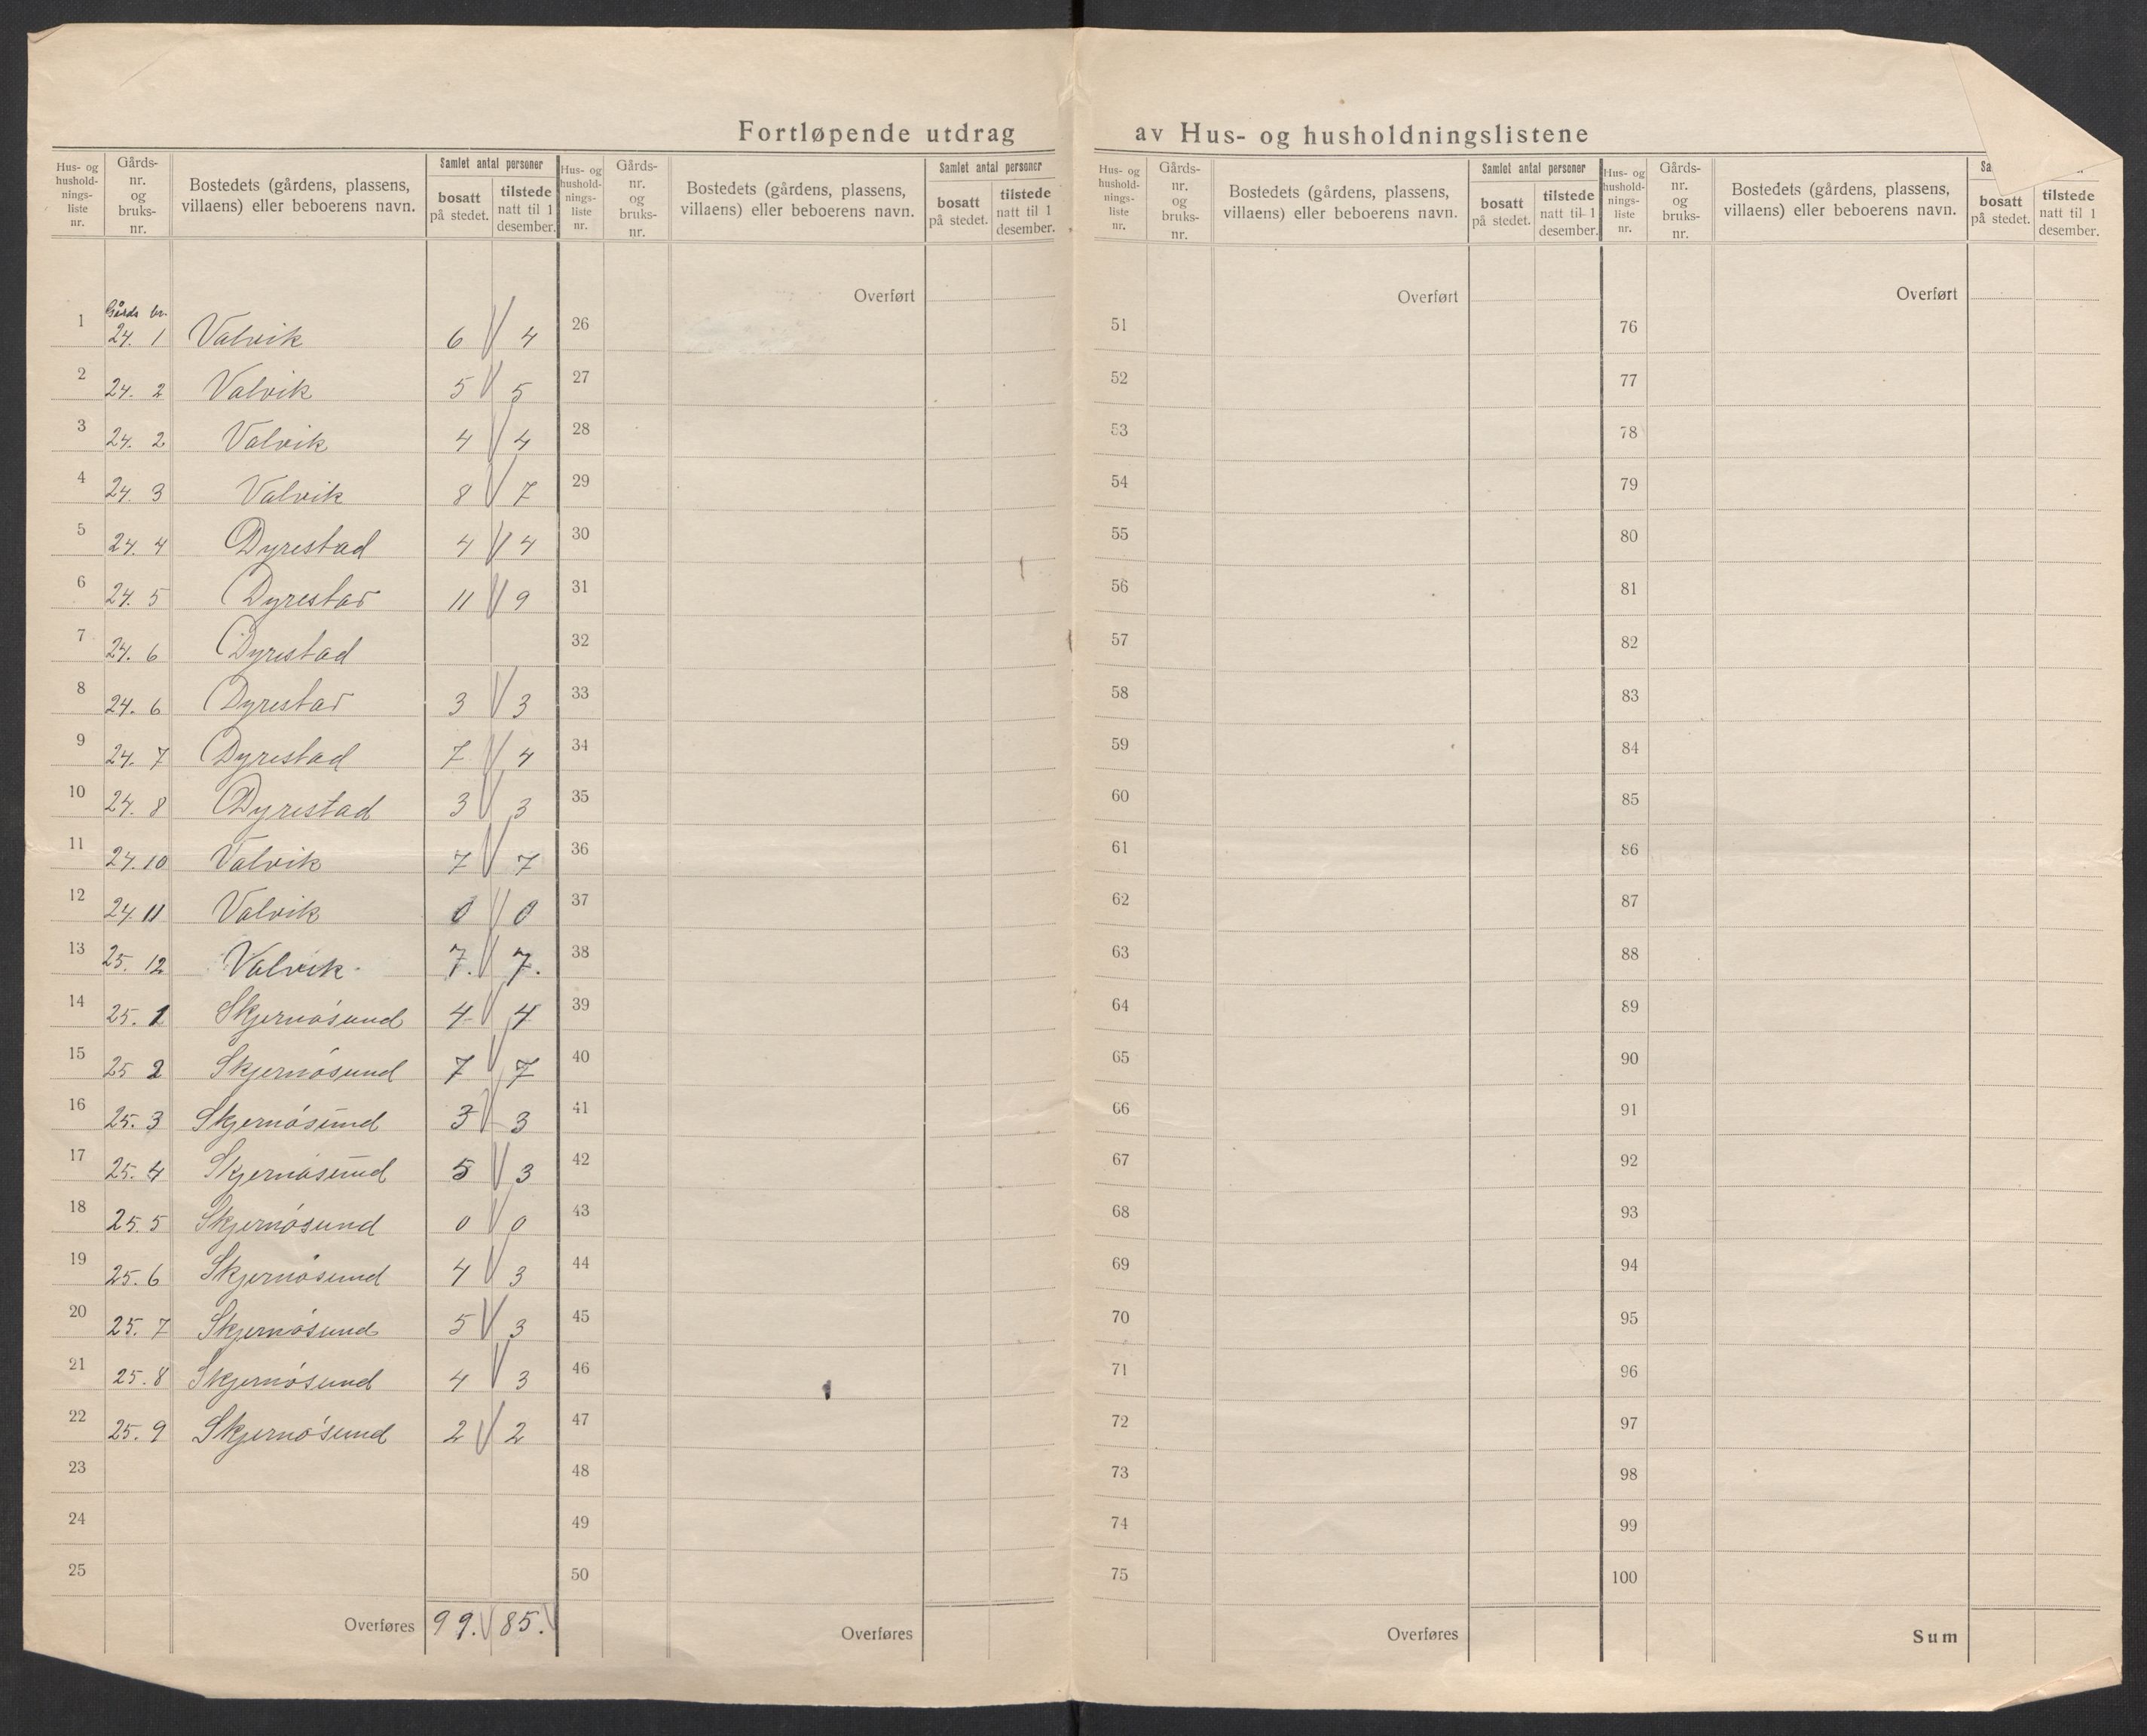 Fortløpende utdrag av Hus- og husholdningslistene
Hus- og husholdnings-liste nr. | Gårds-nr. og bruks-nr. | Bostedets (gårdens, plassens, villaens) eller beboerens navn. | Samlet antal personer | bosatt på stedet. | tilstede natt til 1 desember.
Hus- og husholdnings-liste nr. | Gårds-nr. og bruks-nr. | Bostedets (gårdens, plassens, villaens) eller beboerens navn. | Samlet antal personer | bosatt på stedet. | tilstede natt til 1 desember.
Hus- og husholdnings-liste nr. | Gårds-nr. og bruks-nr. | Bostedets (gårdens, plassens, villaens) eller beboerens navn. | Samlet antal personer | bosatt på stedet. | tilstede natt til 1 desember.
Hus- og husholdnings-liste nr. | Gårds-nr. og bruks-nr. | Bostedets (gårdens, plassens, villaens) eller beboerens navn. | Sa | bosatt på stedet. | tilstede natt til 1 desember.
Overført Overført Overført
Gårds br.
1 24. 1 Valvik 6 4 26 51 76
2 24. 2 Valvik 5 5 27 52 77
3 24. 2 Valvik 4 4 28 53 78
4 24. 3 Valvik 8 7 29 54 79
5 24. 4 Dyrestad 4 4 30 55 80
6 24. 5 Dyrestad 11 9 31 56 81
7 24. 6 Dyrestad 32 57 82
8 24. 6 Dyrestad 3 3 33 58 83
9 24. 7 Dyrestad 7 4 34 59 84
10 24. 8 Dyrestad 3 3 35 60 85
11 24. 10 Valvik 7 7 36 61 86
12 24. 11 Valvik 0 0 37 62 87
13 25. 12 Valvik 7. 7. 38 63 88
14 25. 1 Skjernøsund 4 4 39 64 89
15 25 2 Skjernøsund 7 7 40 65 90
16 25. 3 Skjernøsund 3 3 41 66 91
17 25. 4 Skjernøsund 5 3 42 67 92
18 25. 5 Skjernøsund 0 0 43 68 93
19 25. 6 Skjernøsund 4 3 44 69 94
20 25. 7 Skjernøsund 5 3 45 70 95
21 25. 8 Skjernøsund 4 3 46 71 96
22 25. 9 Skjernøsund 2 2 47 72 97
23 48 73 98
24 49 74 99
25 50 75 100
Overføres 99. 85. Overføres Overføres Sum